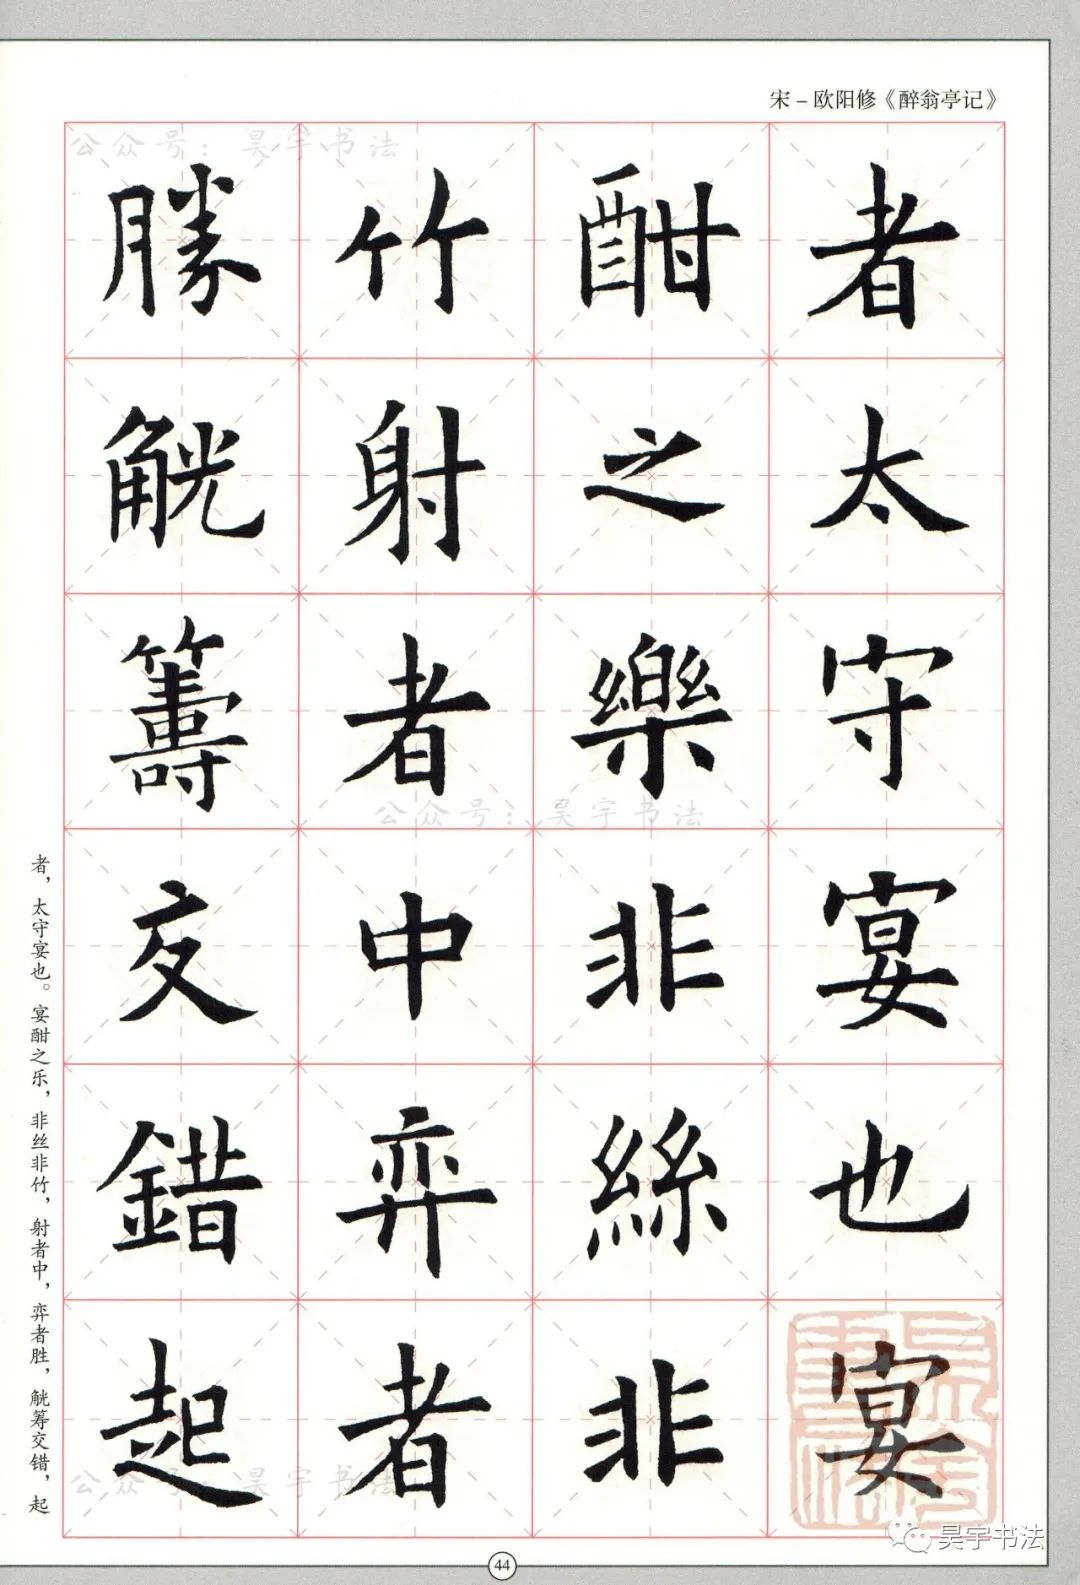 宋－欧阳修《醉翁亭记》
者太守宴也宴
酣之樂非絲非
竹射者中弈者
勝觥籌交錯起
者，太守宴也。宴酣之乐，非丝非竹，射者中，弈者胜，觥筹交错，起
公众号：昊宇书法
公众号：昊宇书法
公众号：昊宇书法
44
昊宇书法